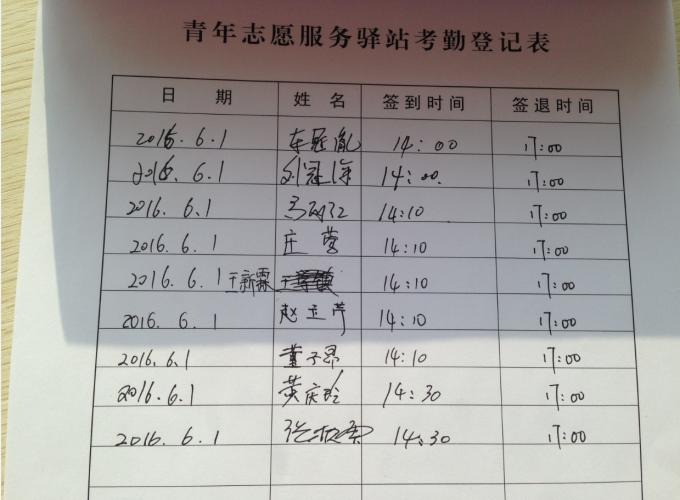 青年志愿服务驿站考勤登记表
日 期 姓 名 签到时间 签退时间
2016.6.1 车冠胤 14:00 17:00
2016.6.1 刘冠 14:00 17:00
2016.6.1 14:10 17:00
2016.6.1 庄莹 14:10 17:00
2016.6.1 王新霖 14:10 17:00
2016.6.1 赵立芹 14:10 17:00
2016.6.1 董子昂 14:10 17:00
2016.6.1 黄庆玲 14:30 17:00
2016.6.1 张 14:30 17:00